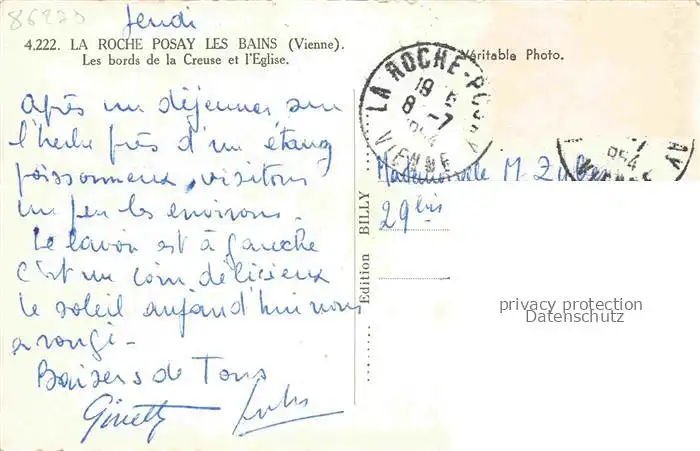 86223
Jeudi
4.222. LA ROCHE POSAY LES BAINS (Vienne).
Les bords de la Creuse et l'Eglise.
Véritable Photo.
LA ROCHE-POSAY
19
8 -7
1954
VIENNE
Après un déjeuner sur
l'herbe près d'un étang
poissonneux, visitons
un peu les environs.
Le lavoir est à gauche
C'est un coin délicieux
le soleil aujourd'hui nous
a rougi -
Baisers de Tous
Ginette
-7
954
AY
Mademoiselle M.
29 bis
Edition BILLY
privacy protection
Datenschutz